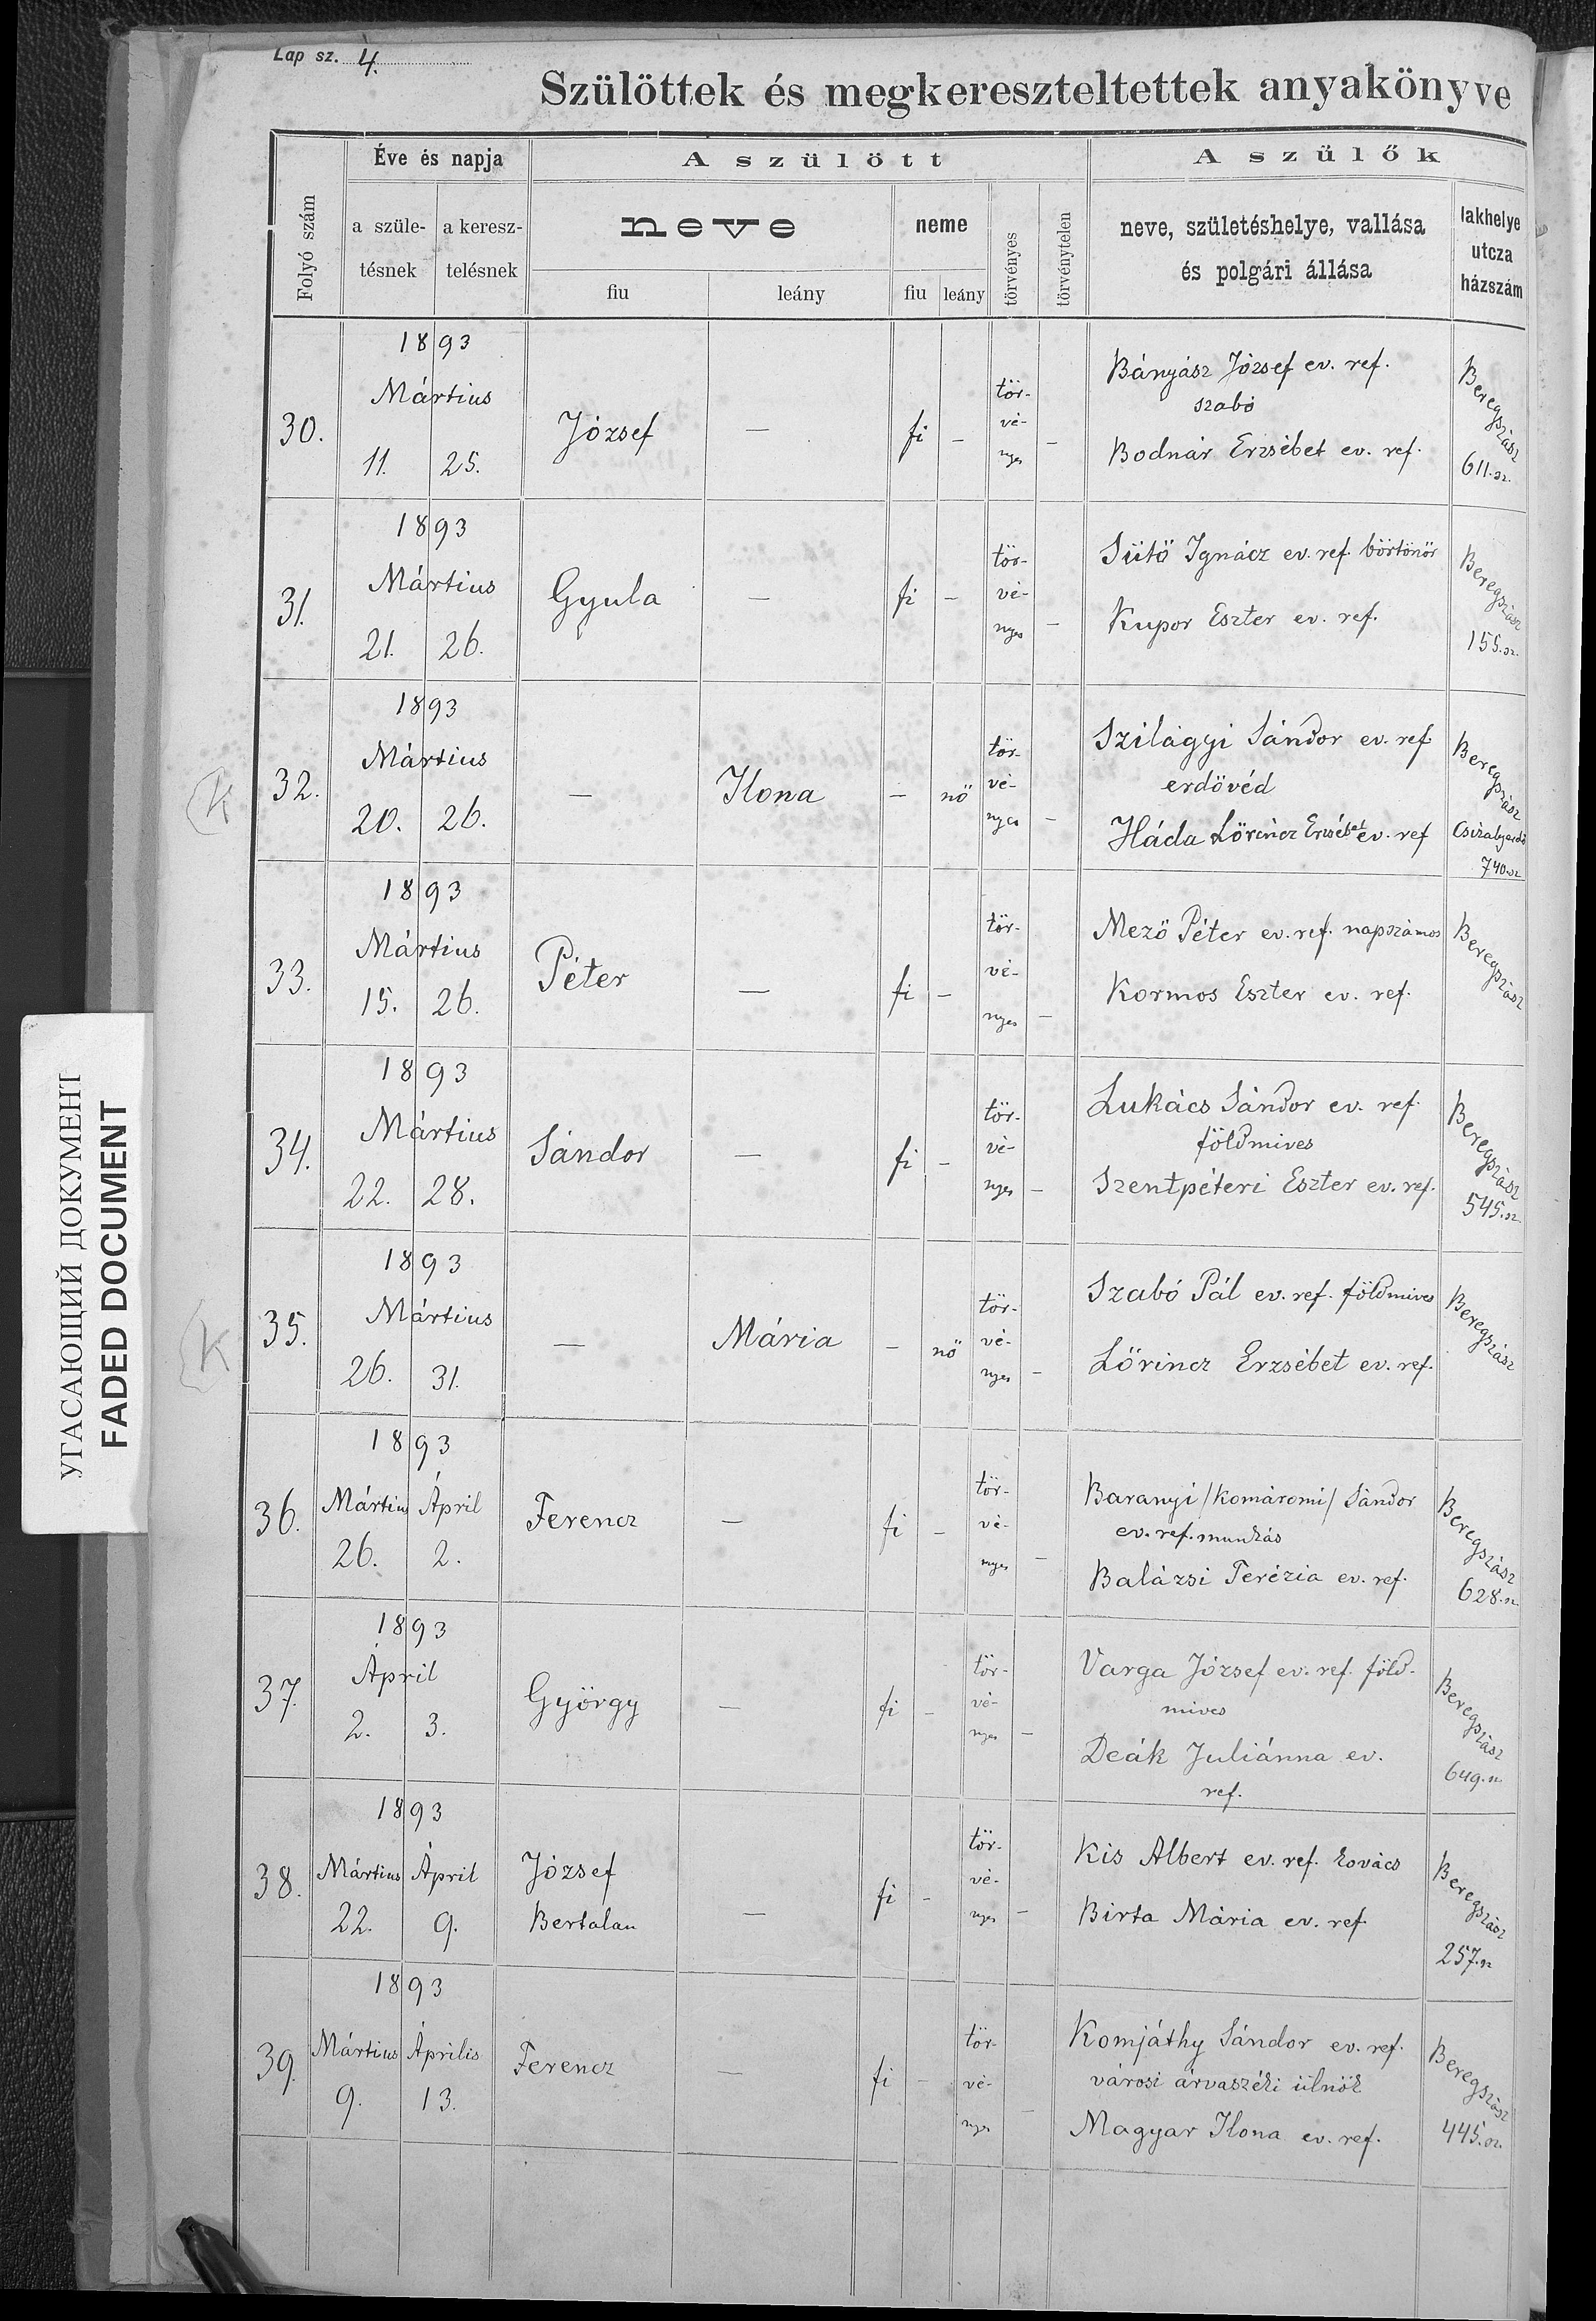 Lap sz. 4.
Szülöttek és megkereszteltettek anyakönyve
Folyó szám
Éve és napja
a szüle-
tésnek
a keresz-
telésnek
A szülött
neve
fiu
leány
neme
fiu
leány
törvényes
törvénytelen
A szülők
neve, születéshelye, vallása
és polgári állása
lakhelye
utcza
házszám
30.
1893
Mártius
11. 25.
József
—
fi
—
tör-
vé-
nyes
—
Bányász József ev. ref.
szabó
Bodnár Erzsébet ev. ref.
Beregszász
611. sz.
31.
1893
Mártius
21. 26.
Gyula
—
fi
—
tör-
vé-
nyes
—
Sütö Ignácz ev. ref. börtönör
Kupor Eszter ev. ref.
Beregszász
155. sz.
K
32.
1893
Mártius
20. 26.
—
Ilona
—
nö
tör-
vé-
nyes
—
Szilágyi Sándor ev. ref
erdövéd
Háda Lörincz Erzsébet ev. ref
Beregszász
740. sz
33.
1893
Mártius
15. 26.
Péter
—
fi
—
tör-
vé-
nyes
—
Mezö Péter ev. ref. napszámos
Kormos Eszter ev. ref.
Beregszász
34.
1893
Mártius
22. 28.
Sándor
—
fi
—
tör-
vé-
nyes
—
Lukács Sándor ev. ref.
földmives
Szentpéteri Eszter ev. ref.
Beregszász
545. sz.
K
35.
1893
Mártius
26. 31.
—
Mária
—
nö
tör-
vé-
nyes
—
Szabó Pál ev. ref. földmives
Lörincz Erzsébet ev. ref.
Beregszász
36.
1893
Mártius Ápril
26. 2.
Ferencz
—
fi
—
tör-
vé-
nyes
—
Baranyi /Komáromi/ Sándor
ev. ref. munkás
Balázsi Terézia ev. ref.
Beregszász
628. sz.
37.
1893
Ápril
2. 3.
György
—
fi
—
tör-
vé-
nyes
—
Varga József ev. ref. föld-
mives
Deák Juliánna ev.
ref.
Beregszász
649. sz.
38.
1893
Mártius Ápril
22. 9.
József
Bertalan
—
fi
—
tör-
vé-
nyes
—
Kis Albert ev. ref. kovács
Birta Mária ev. ref.
Beregszász
257. sz
39.
1893
Mártius Április
9. 13.
Ferencz
—
fi
—
tör-
vé-
nyes
—
Komjáthy Sándor ev. ref.
városi árvaszéki ülnök
Magyar Ilona ev. ref.
Beregszász
445. sz.
УГАСАЮЩИЙ ДОКУМЕНТ
FADED DOCUMENT